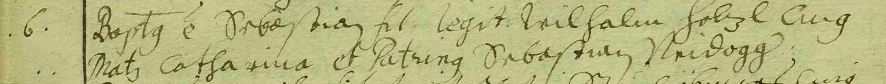 .6. Bapt9 e Sebastian fil legit Wilhalm Holzl Aug
Matz Catharina et Patring Sebastian Neidogg